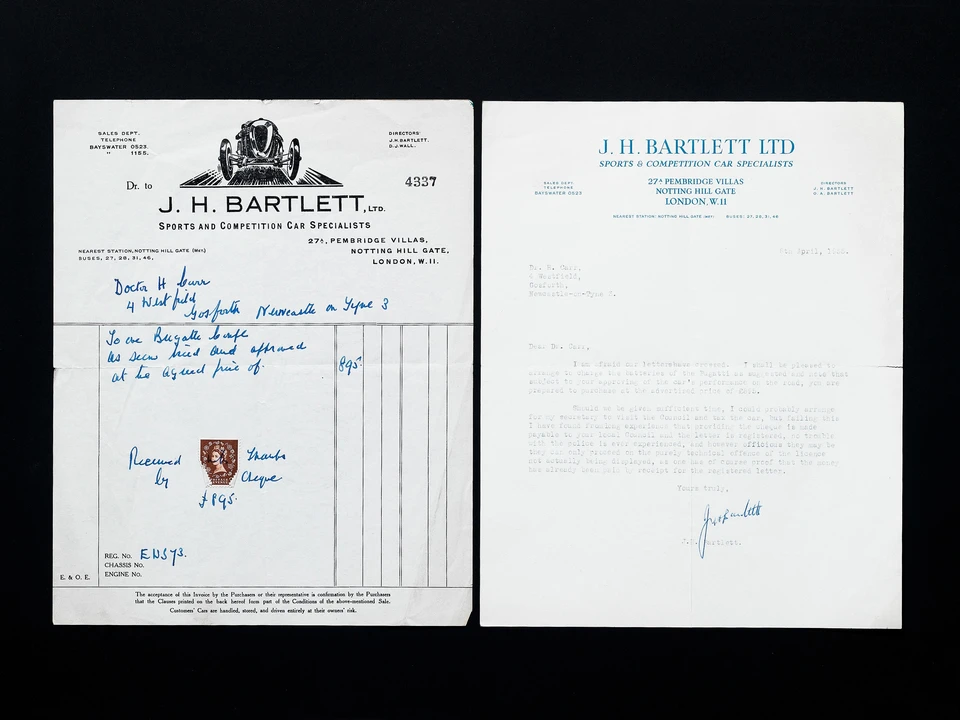 SALES DEPT.
TELEPHONE
BAYSWATER 0523.
" 1155.
DIRECTORS'
J.H. BARTLETT.
D.J. WALL.
Dr. to
4337
J. H. BARTLETT, LTD.
SPORTS AND COMPETITION CAR SPECIALISTS
27A, PEMBRIDGE VILLAS,
NOTTING HILL GATE,
LONDON, W.11.
NEAREST STATION, NOTTING HILL GATE (MET.)
BUSES, 27, 28, 31, 46,
Doctor H Carr
4 Westfield
Gosforth Newcastle on Tyne 3
To one Bugatti Coupe
as seen tried and approved
at the agreed price of.
895.
Received Thanks
by Cheque
£895.
REG. NO.
CHASSIS NO.
ENGINE NO.
E. & O. E.
The acceptance of this Invoice by the Purchasers or their representative is confirmation by the Purchasers
that the Clauses printed on the back hereof form part of the Conditions of the above-mentioned Sale.
Customers' Cars are handled, stored, and driven entirely at their owners' risk.
J. H. BARTLETT LTD
SPORTS & COMPETITION CAR SPECIALISTS
SALES DEPT
TELEPHONE
BAYSWATER 0523
27A PEMBRIDGE VILLAS
NOTTING HILL GATE
LONDON, W.11
DIRECTORS
J. H. BARTLETT
NEAREST STATION: NOTTING HILL GATE (MET.) BUSES: 27, 28, 31, 46
April,
Dr. H. Carr,
4 Westfield,
Gosforth,
Newcastle-on-Tyne
Dear Dr. Carr,
I am afraid our letters have crossed. I shall be pleased to
arrange to charge the batteries of the Bugatti as suggested and note that
subject to your approving of the car's performance on the road, you are
prepared to purchase at the advertised price of
Should we be given sufficient time, I would probably arrange
for my secretary to visit the Council and tax the car, but failing this
I have found from long experience that providing the cheque is made
payable to your local Council and the letter is registered, no trouble
with the police is ever experienced, and however officious they may be
they can only proceed on the purely technical offence of the licence
not actually being displayed, as one has of course proof that the money
has already been paid by receipt for the registered letter.
Yours truly,
J.H. Bartlett.